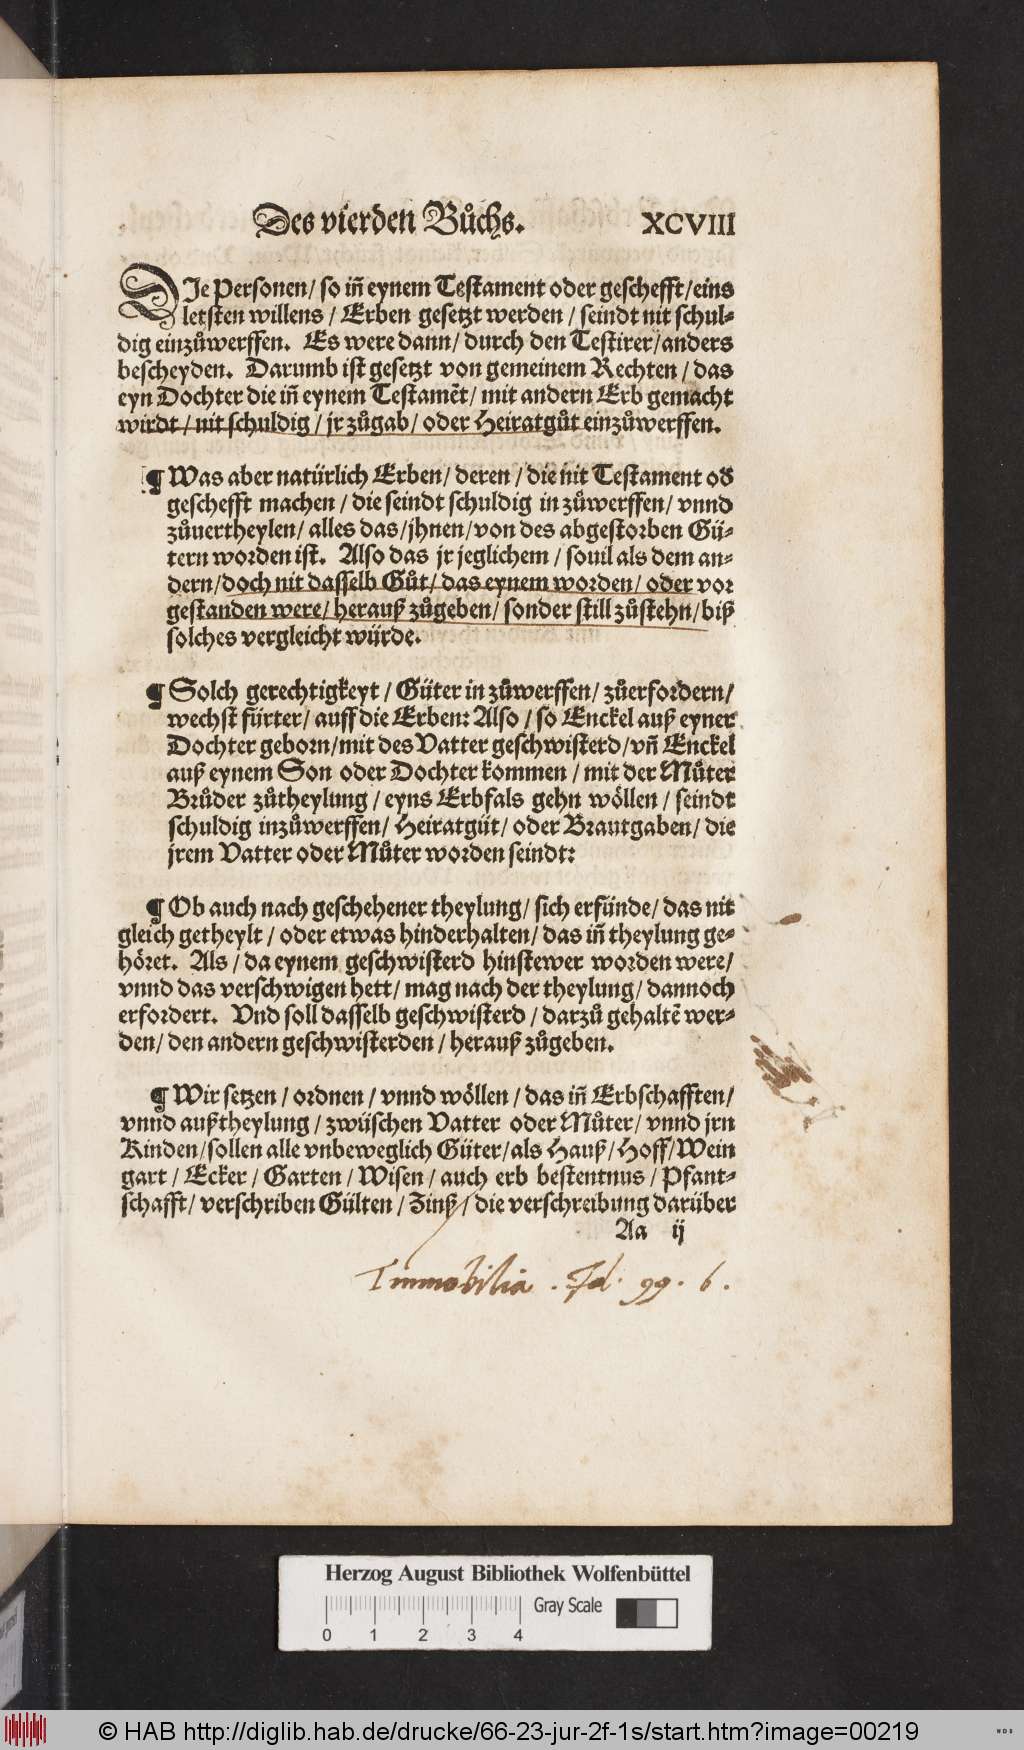 Des vierden Bůchs. XCVIII
DIe Personen / so iñ eynem Testament oder geschefft / eins
letsten willens / Erben gesetzt werden / seindt nit schul-
dig einzůwerffen. Es were dann / durch den Testirer / anders
bescheyden. Darumb ist gesetzt von gemeinem Rechten / das
eyn Dochter die iñ eynem Testamẽt / mit andern Erb gemacht
wirdt / nit schuldig / jr zůgab / oder Heiratgůt einzůwerffen.
¶ Was aber natürlich Erben / deren / die nit Testament oď
geschefft machen / die seindt schuldig in zůwerffen / vnnd
zůuertheylen / alles das / jhnen / von des abgestorben Gü-
tern worden ist. Also das jr jeglichem / souil als dem an-
dern / doch nit dasselb Gůt / das eynem worden / oder vor
gestanden were / herauß zůgeben / sonder still zůstehn / biß
solches vergleicht würde.
¶ Solch gerechtigkeyt / Güter in zůwerffen / zůerfordern /
wechst fürter / auff die Erben: Also / so Enckel auß eyner
Dochter geborn / mit des Vatter geschwisterd / vñ Enckel
auß eynem Son oder Dochter kommen / mit der Můter
Brůder zůtheylung / eyns Erbfals gehn wöllen / seindt
schuldig inzůwerffen / Heiratgüt / oder Brautgaben / die
jrem Vatter oder Můter worden seindt:
¶ Ob auch nach geschehener theylung / sich erfünde / das nit
gleich getheylt / oder etwas hinderhalten / das iñ theylung ge-
höret. Als / da eynem geschwisterd hinstewer worden were /
vnnd das verschwigen hett / mag nach der theylung / dannoch
erfordert. Vnd soll dasselb geschwisterd / darzů gehaltẽ wer-
den / den andern geschwisterden / herauß zůgeben.
¶ Wir setzen / ordnen / vnnd wöllen / das iñ Erbschafften /
vnnd außtheylung / zwüschen Vatter oder Můter / vnnd jrn
Kinden / sollen alle vnbeweglich Güter / als Hauß / Hoff / Wein
gart / Ecker / Garten / Wisen / auch erb bestentnus / Pfant-
schafft / verschriben Gülten / Zinß / die verschreibung darüber
Aa ij
Immobilia . Fol. 99. 6.
Herzog August Bibliothek Wolfenbüttel
Gray Scale
0 1 2 3 4
© HAB http://diglib.hab.de/drucke/66-23-jur-2f-1s/start.htm?image=00219